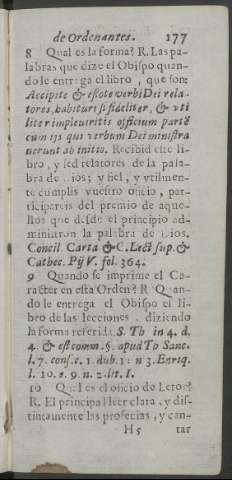 de Ordenantes. 177
8 Qual es la forma? R. Las pa-
labras que dize el Obispo quan-
do le entrega el libro, que son:
Accipite & estote verbi Dei rela-
tores, habituri si fideliter, & vti
liter impleueritis officium partẽ
cum ijs qui verbum Dei ministra
uerunt ab initio. Recibid este li-
bro, y sed relatores de la pala-
bra de Dios; y fiel, y vtilmen-
te cumplis vuestro oficio, par-
ticipareis del premio de aque-
llos que desde el principio ad-
ministron la palabra de Dios.
Concil. Carta & C. Lect sup. &
Cathec. Pij V. fol. 364.
9 Quando se imprime el Ca-
racter en esta Orden? R Quan-
do le entrega el Obispo el li-
bro de las lecciones, diziendo
la forma referida. S. Th in 4. d.
4. & est comm. §. apud To Sanc.
l. 7. cons. c. 1. dub. 1: n 3. Enriq.
l. 10. c. 9. n. 2. lit. I.
10 Qual es el oficio de Letor?
R. El principal leer clara, y dis-
tintamente las profecias, y can-
H5 tar